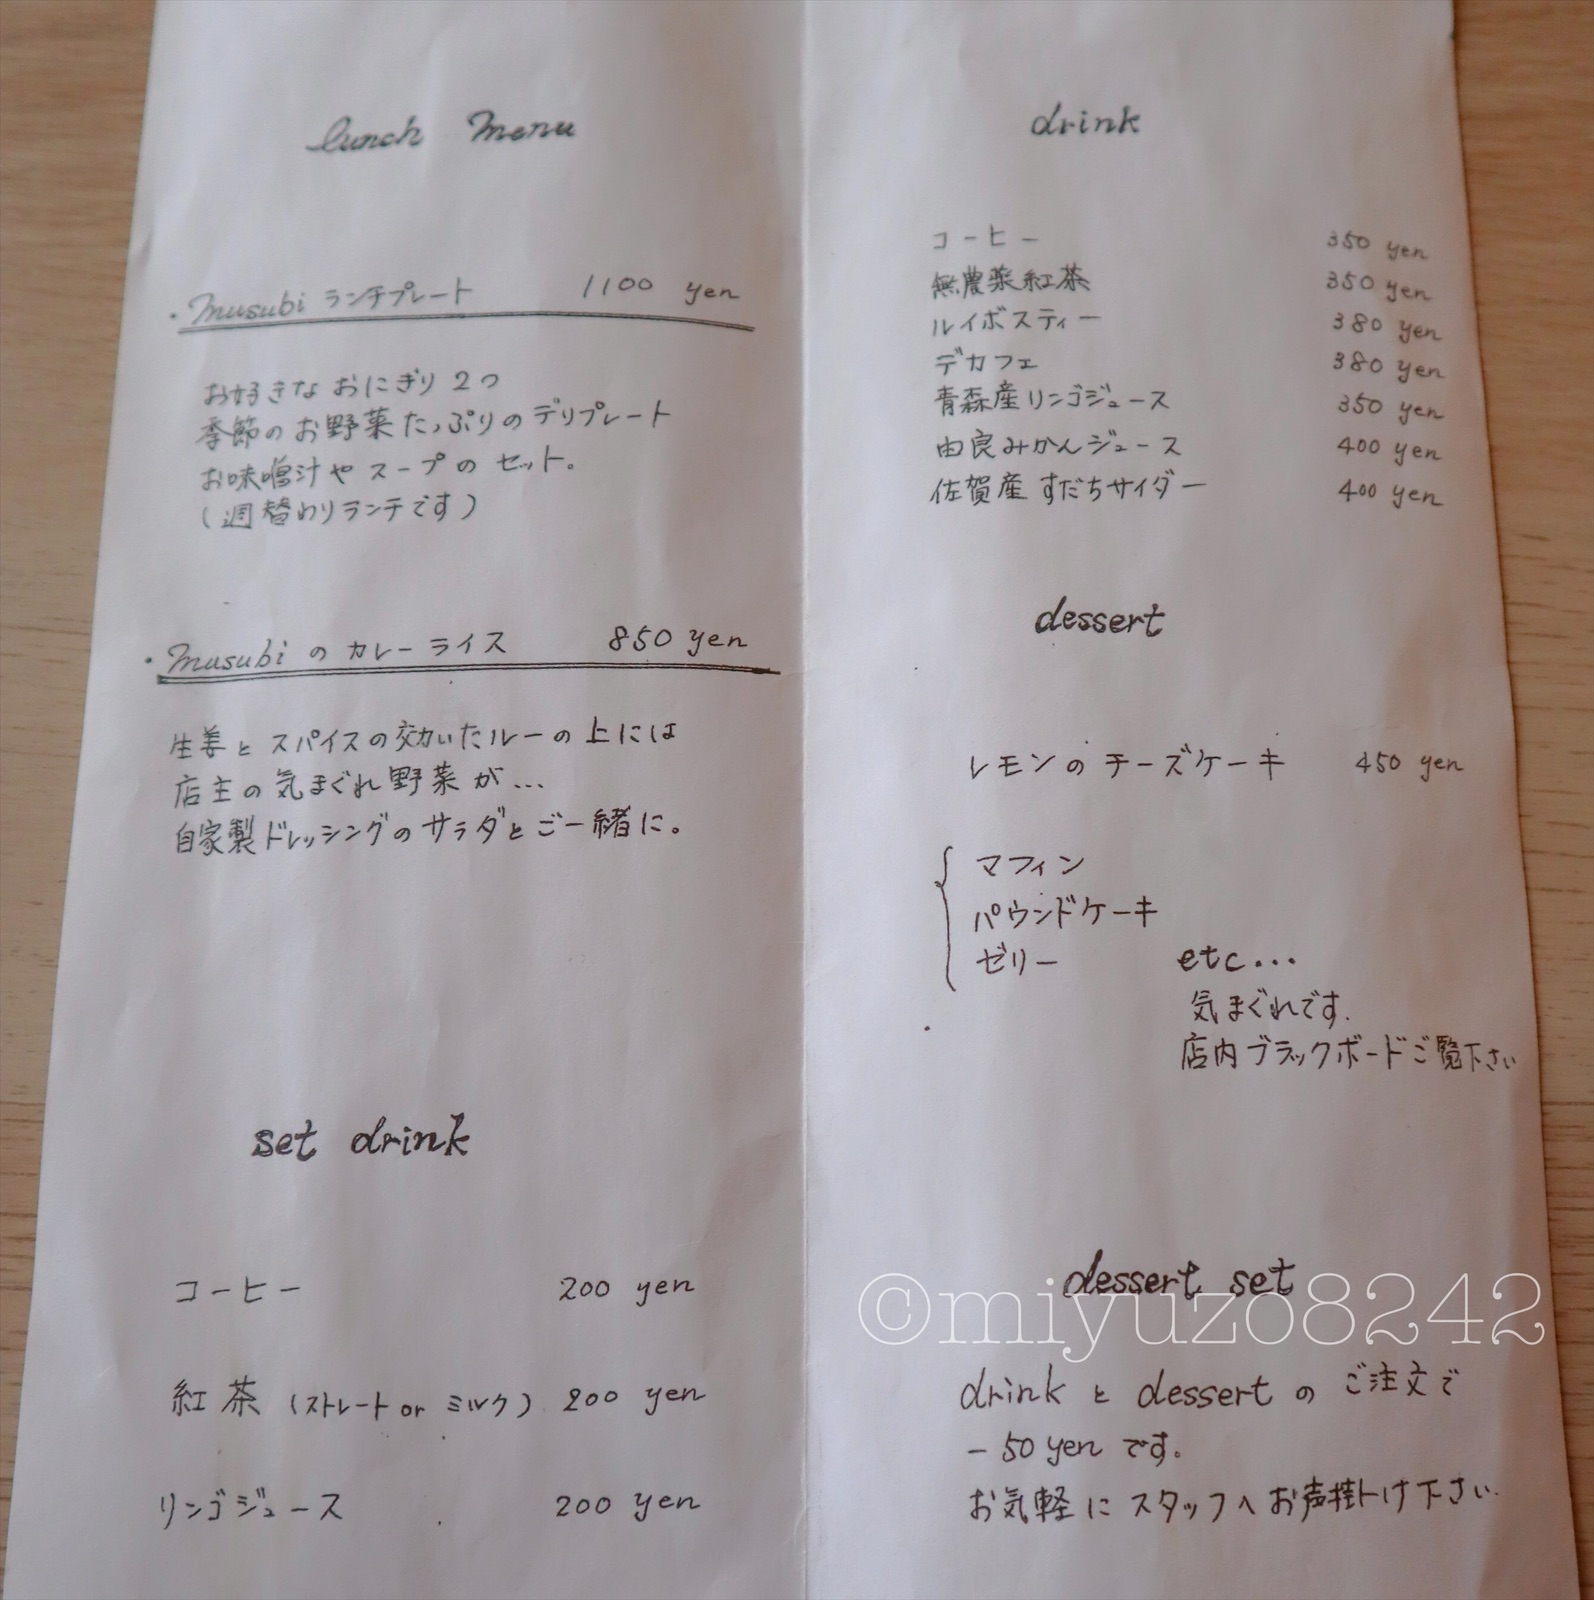 lunch menu
・musubi ランチプレート 1100 yen
お好きな おにぎり 2つ
季節のお野菜たっぷりのデリプレート
お味噌汁や スープ の セット。
(週替わりランチです)
・musubi の カレーライス 850 yen
生姜と スパイスの効いたルーの上には
店主の気まぐれ野菜が...
自家製ドレッシングのサラダとご一緒に。
set drink
コーヒー 200 yen
紅茶 (ストレート or ミルク) 200 yen
リンゴジュース 200 yen
drink
コーヒー 350 yen
無農薬紅茶 350 yen
ルイボスティー 380 yen
デカフェ 380 yen
青森産リンゴジュース 350 yen
由良みかんジュース 400 yen
佐賀産 すだちサイダー 400 yen
dessert
レモンの チーズケーキ 450 yen
マフィン
パウンドケーキ
ゼリー etc...
気まぐれです.
店内ブラックボードご覧下さい
dessert set
©miyuzo8242
drink と dessert の ご注文で
-50 yen です。
お気軽に スタッフへ お声掛け下さい.